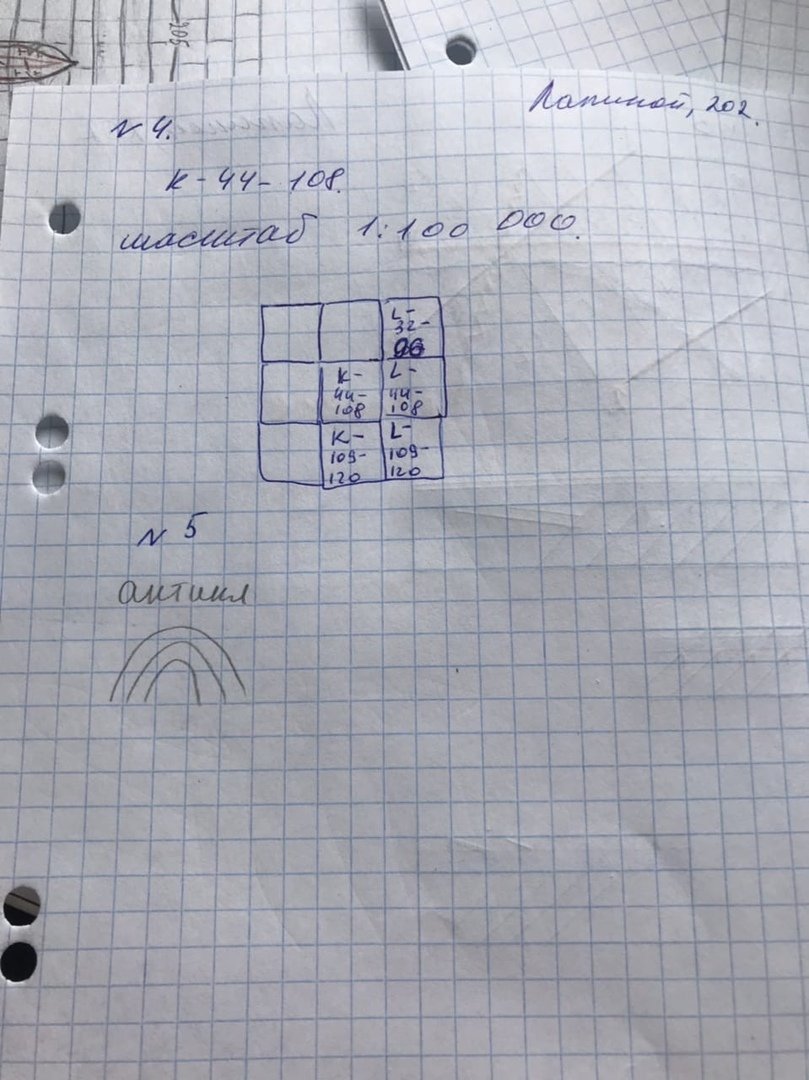 Лапиной, 202.
N 4.
К-44-108.
масштаб 1:100 000.
L-
32-
96
К-
44-
108
L-
44-
108
К-
109-
120
L-
109-
120
N 5
антикл